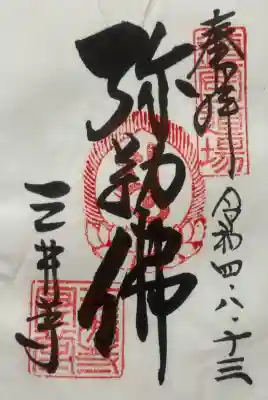 奉拝
令和四・八・十三
弥勒佛
三井寺